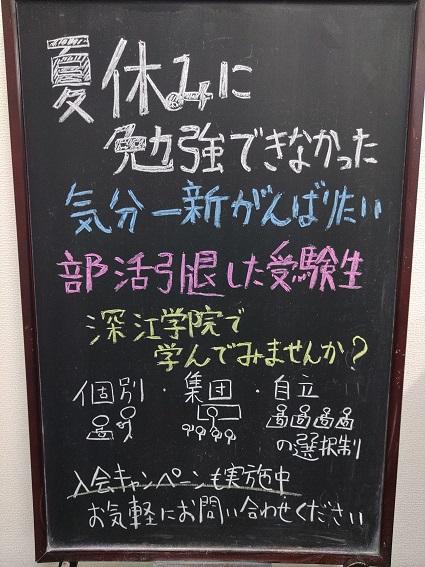 夏休みに
勉強できなかった
気分一新がんばりたい
部活引退した受験生
深江学院で
学んでみませんか？
個別・集団・自立
の選択制
入会キャンペーンも実施中
お気軽にお問い合わせください